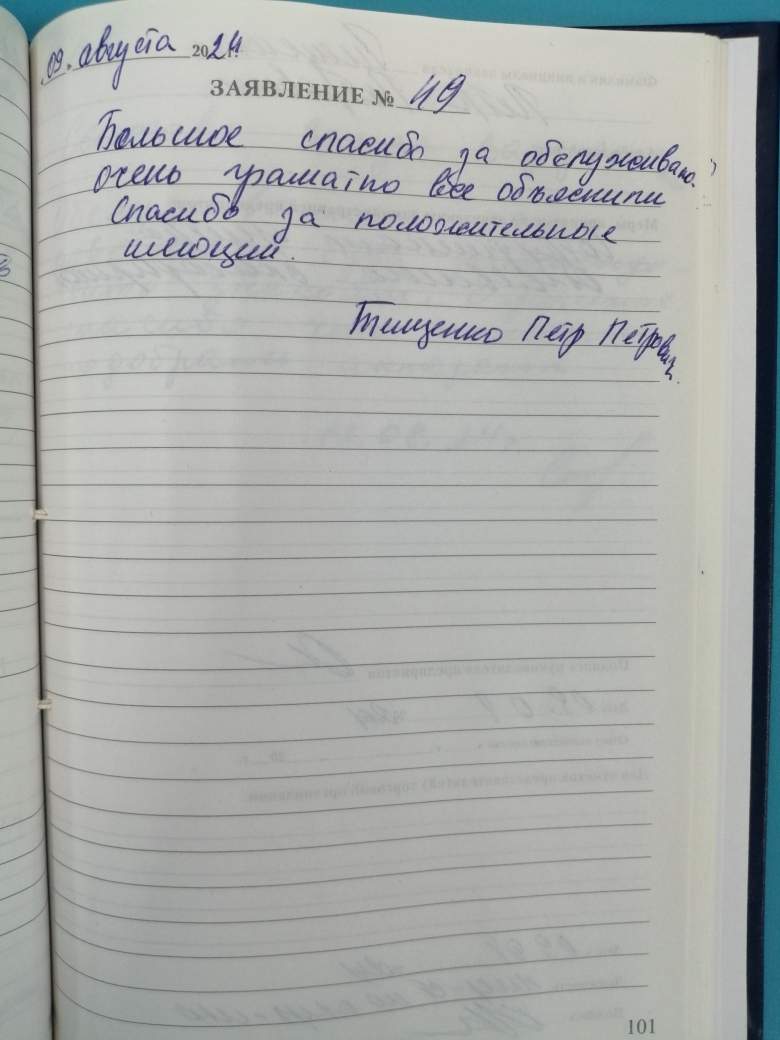 09. августа 2024г.
ЗАЯВЛЕНИЕ № 49
Большое спасибо за обслуживание.
очень граматно все объяснили
Спасибо за положительные
имоции.
Тищенко Петр Петрович.
101